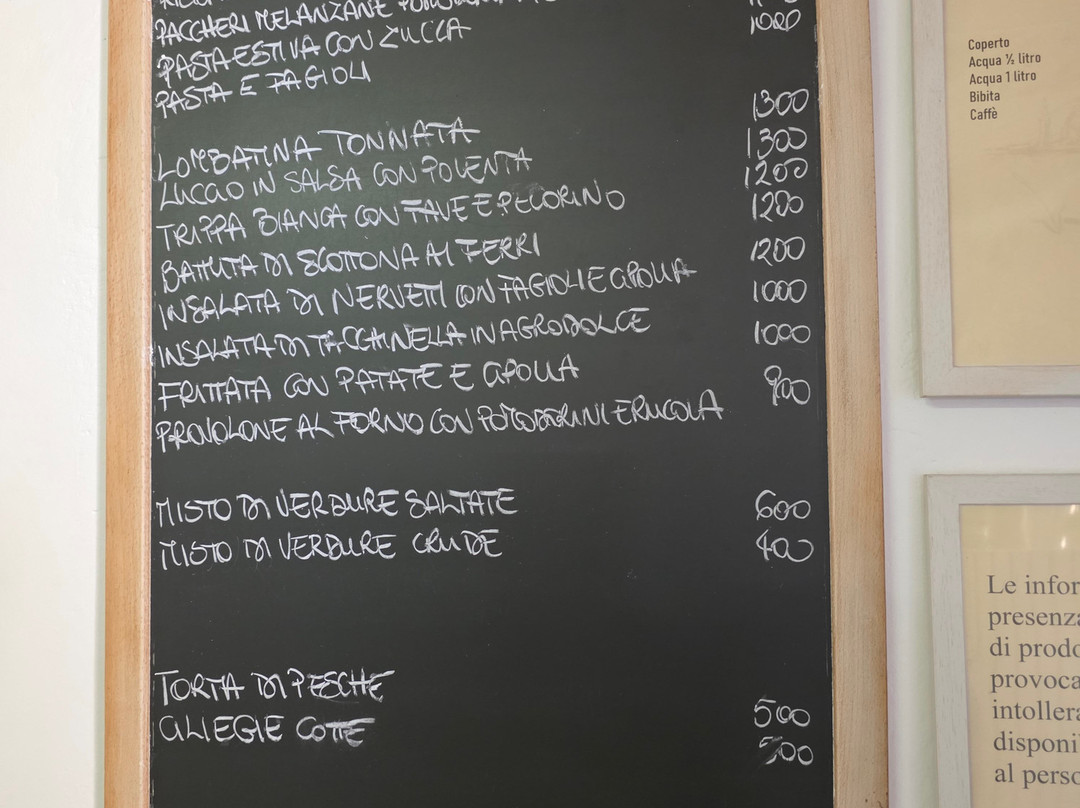 PACCHERI MELANZANE
PASTA ESTIVA CON ZUCCA 1000
PASTA E FAGIOLI
LOMBATINA TONNATA 1300
LUCCIO IN SALSA CON POLENTA 1300
TRIPPA BIANCA CON FAVE E PECORINO 1200
BATTUTA DI SCOTTONA AI FERRI 1200
INSALATA DI NERVETTI CON FAGIOLI E CIPOLLA 1200
INSALATA DI TACCHINELLA IN AGRODOLCE 1000
FRITTATA CON PATATE E CIPOLLA 1000
PROVOLONE AL FORNO CON POMODORINI E RUCOLA 900
MISTO DI VERDURE SALTATE 600
MISTO DI VERDURE CRUDE 400
TORTA DI PESCHE 500
CILIEGIE COTTE 500
Coperto
Acqua ½ litro
Acqua 1 litro
Bibita
Caffè
Le infor
presenza
di prodo
provoca
intollera
disponi
al perso